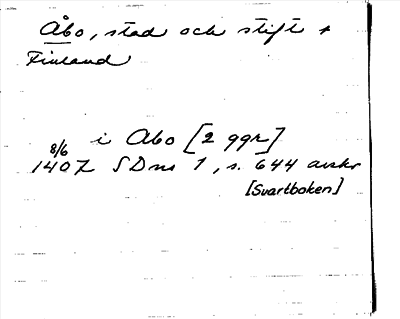 Åbo, stad och stift i
Finland
i Abo [2 ggr]
8/6
1407 SDns 1, s. 644 avskr
[Svartboken]